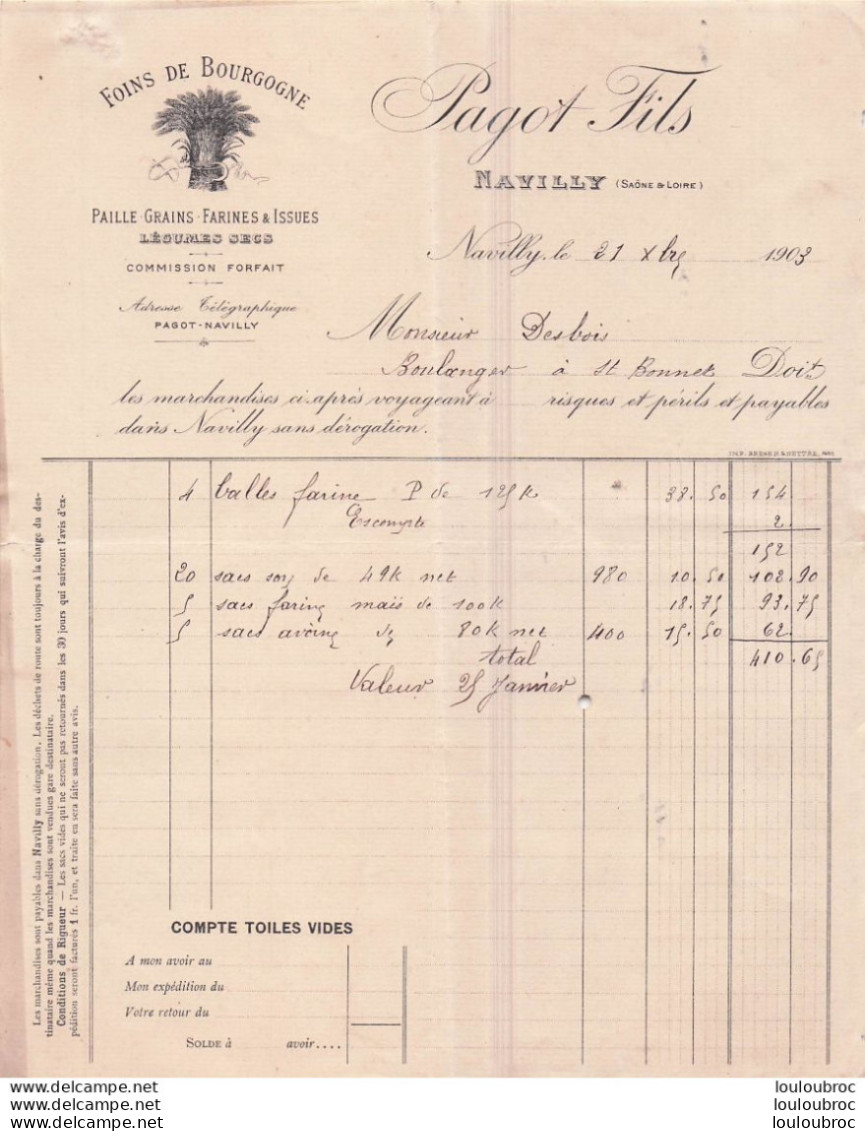 FOINS DE BOURGOGNE
PAILLE-GRAINS-FARINES & ISSUES
LÉGUMES SECS
COMMISSION FORFAIT
Adresse Télégraphique
PAGOT-NAVILLY
Pagot Fils
NAVILLY (SAÔNE & LOIRE)
Navilly, le 21 Xbre 1903
Monsieur Desbois
Boulanger à St Bonnet Doit
les marchandises ci-après voyageant à risques et périls et payables
dans Navilly sans dérogation.
4 balles farine P de 125k 38.50 154
Escompte 2
152
20 sacs son de 49k net 980 10.50 102.90
5 sacs farine maïs de 100k 18.75 93.75
5 sacs avoine de 80k net 400 15.50 62
total 410.65
Valeur 25 Janvier
Les marchandises sont payables dans Navilly sans dérogation. Les déchets de route sont toujours à la charge du des-
tinataire même quand les marchandises sont vendues gare destinataire.
Conditions de Rigueur — Les sacs vides qui ne seront pas retournés dans les 30 jours qui suivront l'avis d'ex-
pédition seront facturés 1 fr. l'un, et traite en sera faite sans autre avis.
COMPTE TOILES VIDES
A mon avoir au
Mon expédition du
Votre retour du
SOLDE à avoir....
louloubroc
louloubroc
louloubroc